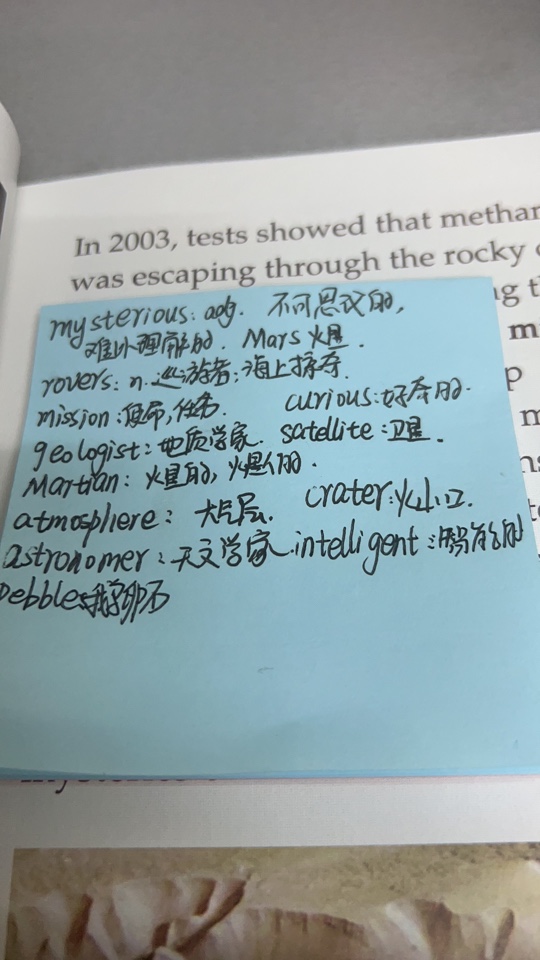 In 2003, tests showed that methan
was escaping through the rocky
ng t
m
p
m
mysterious: adj. 不可思议的,
难以理解的. Mars 火星.
rovers: n. 巡游者; 海上掠夺.
mission: 使命, 任务. curious: 好奇的.
geologist: 地质学家. satellite: 卫星.
Martian: 火星的, 火星人的.
atmosphere: 大气层. crater: 火山口.
astronomer: 天文学家. intelligent: 智能的
pebbles: 鹅卵石